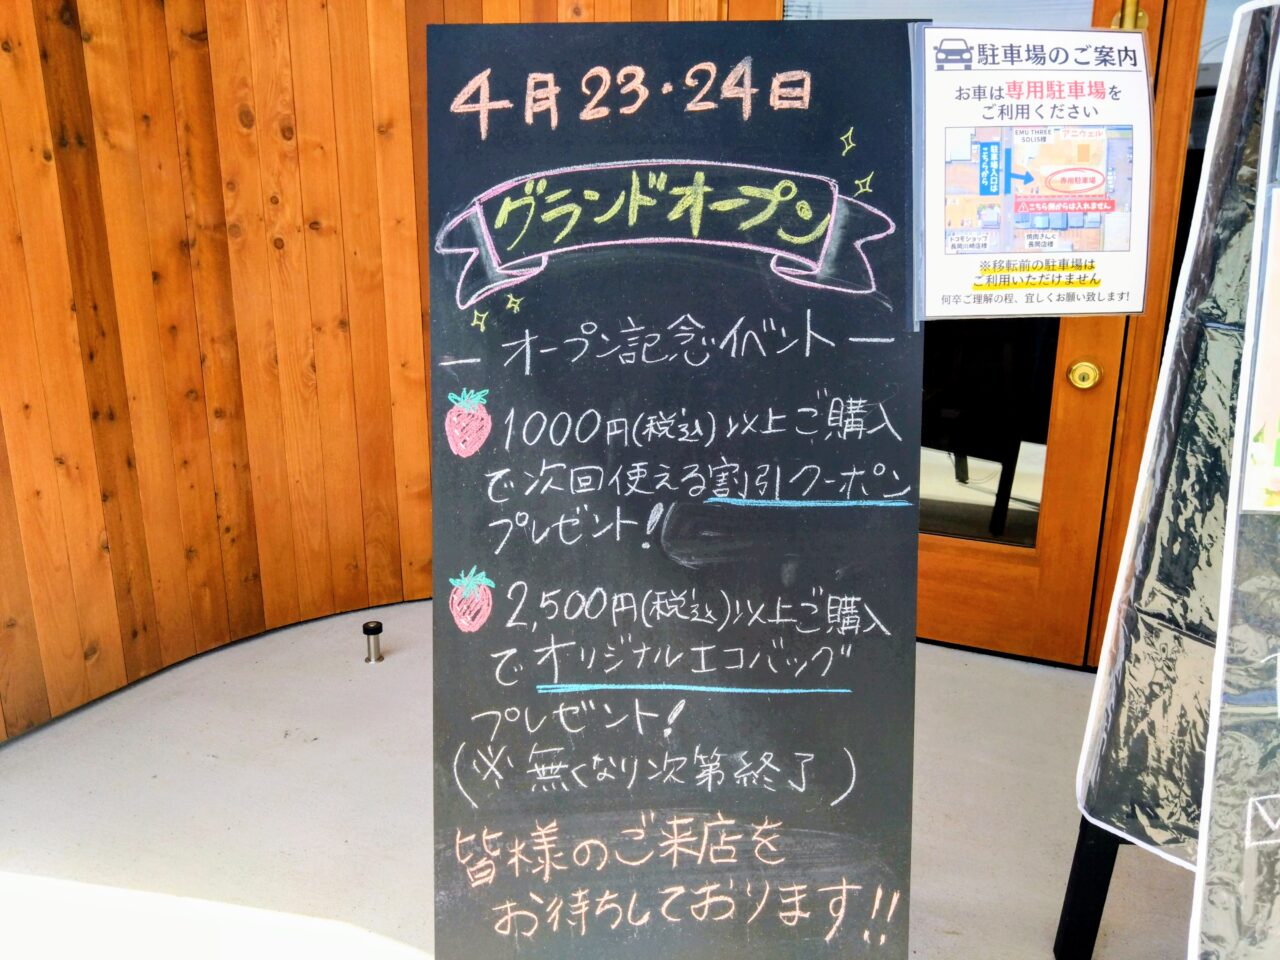 4月23・24日
グランドオープン
— オープン記念イベント —
1000円(税込)以上ご購入
で次回使える割引クーポン
プレゼント!
2,500円(税込)以上ご購入
でオリジナルエコバッグ
プレゼント!
(※無くなり次第終了)
皆様のご来店を
お待ちしております!!
駐車場のご案内
お車は専用駐車場を
ご利用ください
EMU THREE
SOLIS様
アニヴェル
駐車場入口は
こちらから
専用駐車場
こちら側からは入れません
ドコモショップ
長岡川崎店様
焼肉きんぐ
長岡店様
※移転前の駐車場は
ご利用いただけません
何卒ご理解の程、宜しくお願い致します!